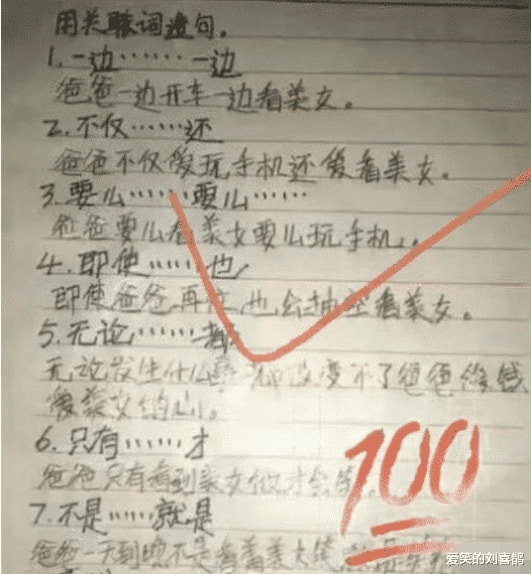 用关联词造句。
1.一边……一边
爸爸一边开车一边看美女。
2.不仅……还
爸爸不仅爱玩手机还爱看美女。
3.要么……要么……
爸爸要么看美女要么玩手机。
4.即使……也
即使爸爸再忙,也会抽空看美女。
5.无论……都
无论发生什么事都改变不了爸爸
爱美女的心。
6.只有……才
爸爸只有看到美女他才会笑
7.不是……就是
爸爸一天到晚不是看着美女笑
100
爱笑的刘喜鹊